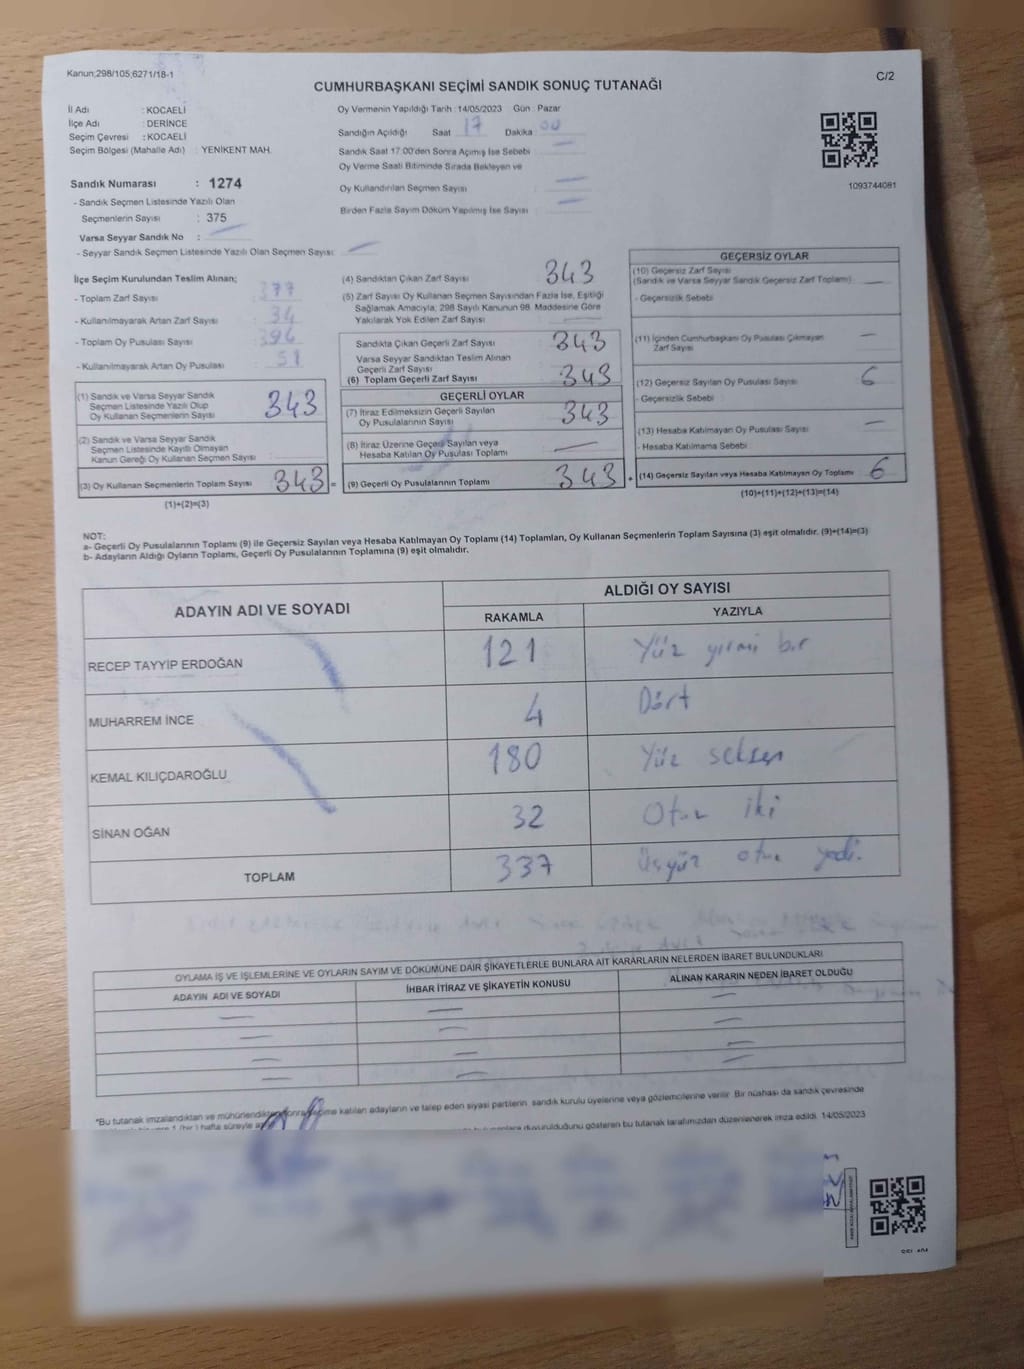 Kanun;298/105,6271/18-1
C/2
CUMHURBAŞKANI SEÇİMİ SANDIK SONUÇ TUTANAĞI
İl Adı : KOCAELİ
İlçe Adı : DERİNCE
Seçim Çevresi : KOCAELİ
Seçim Bölgesi (Mahalle Adı) : YENİKENT MAH.
Sandık Numarası : 1274
- Sandık Seçmen Listesinde Yazılı Olan
Seçmenlerin Sayısı : 375
Varsa Seyyar Sandık No :
- Seyyar Sandık Seçmen Listesinde Yazılı Olan Seçmen Sayısı:
Oy Vermenin Yapıldığı Tarih :14/05/2023 Gün : Pazar
Sandığın Açıldığı Saat 17 Dakika 00
Sandık Saat 17:00'den Sonra Açımış İse Sebebi :
Oy Verme Saati Bitiminde Sırada Bekleyen ve
Oy Kullandırılan Seçmen Sayısı :
Birden Fazla Sayım Döküm Yapılmış İse Sayısı :
1093744081
İlçe Seçim Kurulundan Teslim Alınan;
- Toplam Zarf Sayısı : 377
- Kullanılmayarak Artan Zarf Sayısı : 34
- Toplam Oy Pusulası Sayısı : 396
- Kullanılmayarak Artan Oy Pusulası :
(1) Sandık ve Varsa Seyyar Sandık
Seçmen Listesinde Yazılı Olup
Oy Kullanan Seçmenlerin Sayısı : 343
(2) Sandık ve Varsa Seyyar Sandık
Seçmen Listesinde Kayıtlı Olmayan
Kanun Gereği Oy Kullanan Seçmen Sayısı :
(3) Oy Kullanan Seçmenlerin Toplam Sayısı : 343 =
(1)+(2)=(3)
(4) Sandıktan Çıkan Zarf Sayısı : 343
(5) Zarf Sayısı Oy Kullanan Seçmen Sayısından Fazla İse, Eşitliği
Sağlamak Amacıyla, 298 Sayılı Kanunun 98. Maddesine Göre
Yakılarak Yok Edilen Zarf Sayısı :
Sandıkta Çıkan Geçerli Zarf Sayısı : 343
Varsa Seyyar Sandıktan Teslim Alınan
Geçerli Zarf Sayısı :
(6) Toplam Geçerli Zarf Sayısı : 343
GEÇERLİ OYLAR
(7) İtiraz Edilmeksizin Geçerli Sayılan
Oy Pusulalarının Sayısı : 343
(8) İtiraz Üzerine Geçerli Sayılan veya
Hesaba Katılan Oy Pusulası Toplamı :
(9) Geçerli Oy Pusulalarının Toplamı : 343 +
GEÇERSİZ OYLAR
(10) Geçersiz Zarf Sayısı
(Sandık ve Varsa Seyyar Sandık Geçersiz Zarf Toplamı) :
- Geçersizlik Sebebi :
(11) İçinden Cumhurbaşkanı Oy Pusulası Çıkmayan
Zarf Sayısı :
(12) Geçersiz Sayılan Oy Pusulası Sayısı : 6
- Geçersizlik Sebebi :
(13) Hesaba Katılmayan Oy Pusulası Sayısı :
- Hesaba Katılmama Sebebi :
(14) Geçersiz Sayılan veya Hesaba Katılmayan Oy Toplamı : 6
(10)+(11)+(12)+(13)=(14)
NOT:
a- Geçerli Oy Pusulalarının Toplamı (9) ile Geçersiz Sayılan veya Hesaba Katılmayan Oy Toplamı (14) Toplamları, Oy Kullanan Seçmenlerin Toplam Sayısına (3) eşit olmalıdır. (9)+(14)=(3)
b- Adayların Aldığı Oyların Toplamı, Geçerli Oy Pusulalarının Toplamına (9) eşit olmalıdır.
ADAYIN ADI VE SOYADI
ALDIĞI OY SAYISI
RAKAMLA YAZIYLA
RECEP TAYYİP ERDOĞAN 121 Yüz yirmi bir
MUHARREM İNCE 4 Dört
KEMAL KILIÇDAROĞLU 180 Yüz seksen
SİNAN OĞAN 32 Otuz iki
TOPLAM 337 Üçyüz otuz yedi.
OYLAMA İŞ VE İŞLEMLERİNE VE OYLARIN SAYIM VE DÖKÜMÜNE DAİR ŞİKAYETLERLE BUNLARA AİT KARARLARIN NELERDEN İBARET BULUNDUKLARI
ADAYIN ADI VE SOYADI
İHBAR İTİRAZ VE ŞİKAYETİN KONUSU
ALINAN KARARIN NEDEN İBARET OLDUĞU
*Bu tutanak imzalandıktan ve mühürlendikten sonra seçime katılan adayların ve talep eden siyasi partilerin sandık kurulu üyelerine veya gözlemcilerine verilir. Bir nüshası da sandık çevresinde
1 (bir) hafta süreyle duyurulduğunu gösteren bu tutanak tarafımızdan düzenlenerek imza edildi. 14/05/2023